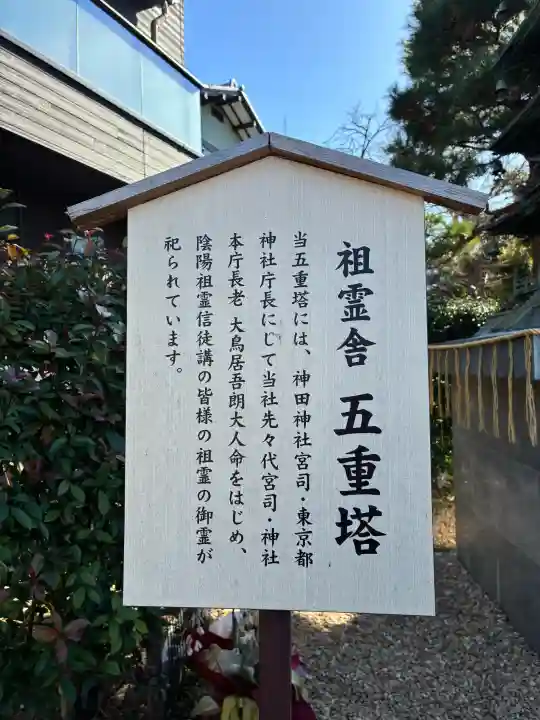 祖霊舎 五重塔
当五重塔には、神田神社宮司・東京都
神社庁長にじて当社先々代宮司・神社
本庁長老 大鳥居吾朗大人命をはじめ、
陰陽祖霊信徒講の皆様の祖霊の御霊が
祀られています。